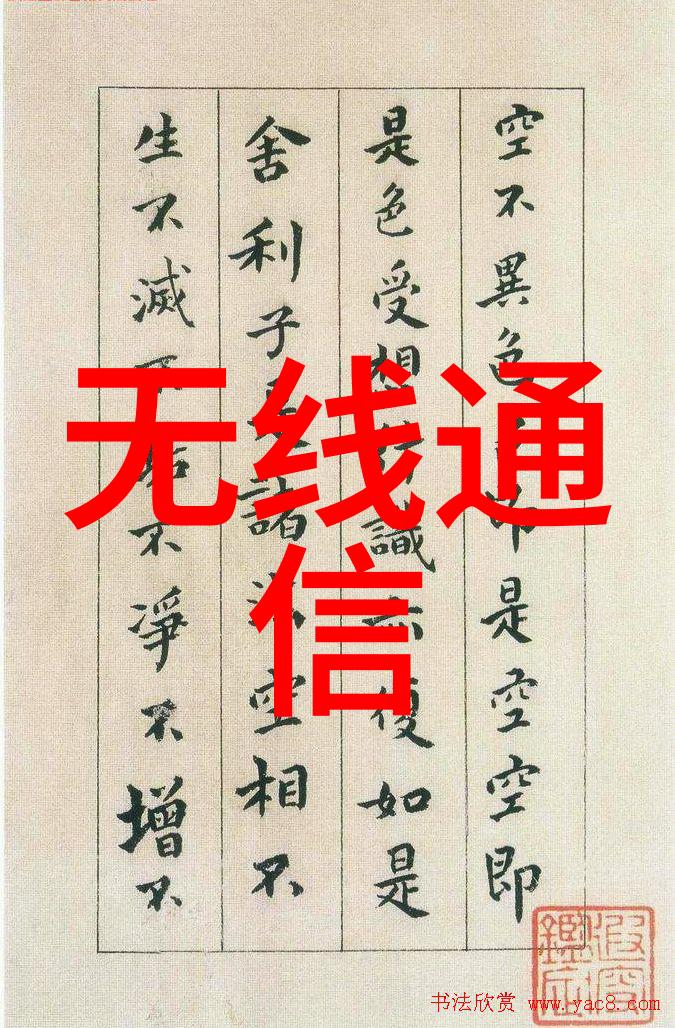 空不異色色即是空空即
是色受想行識亦復如是
舍利子是諸法空相不
生不滅不垢不淨不增不
无线通
信
书法欣赏 www.yac8.com